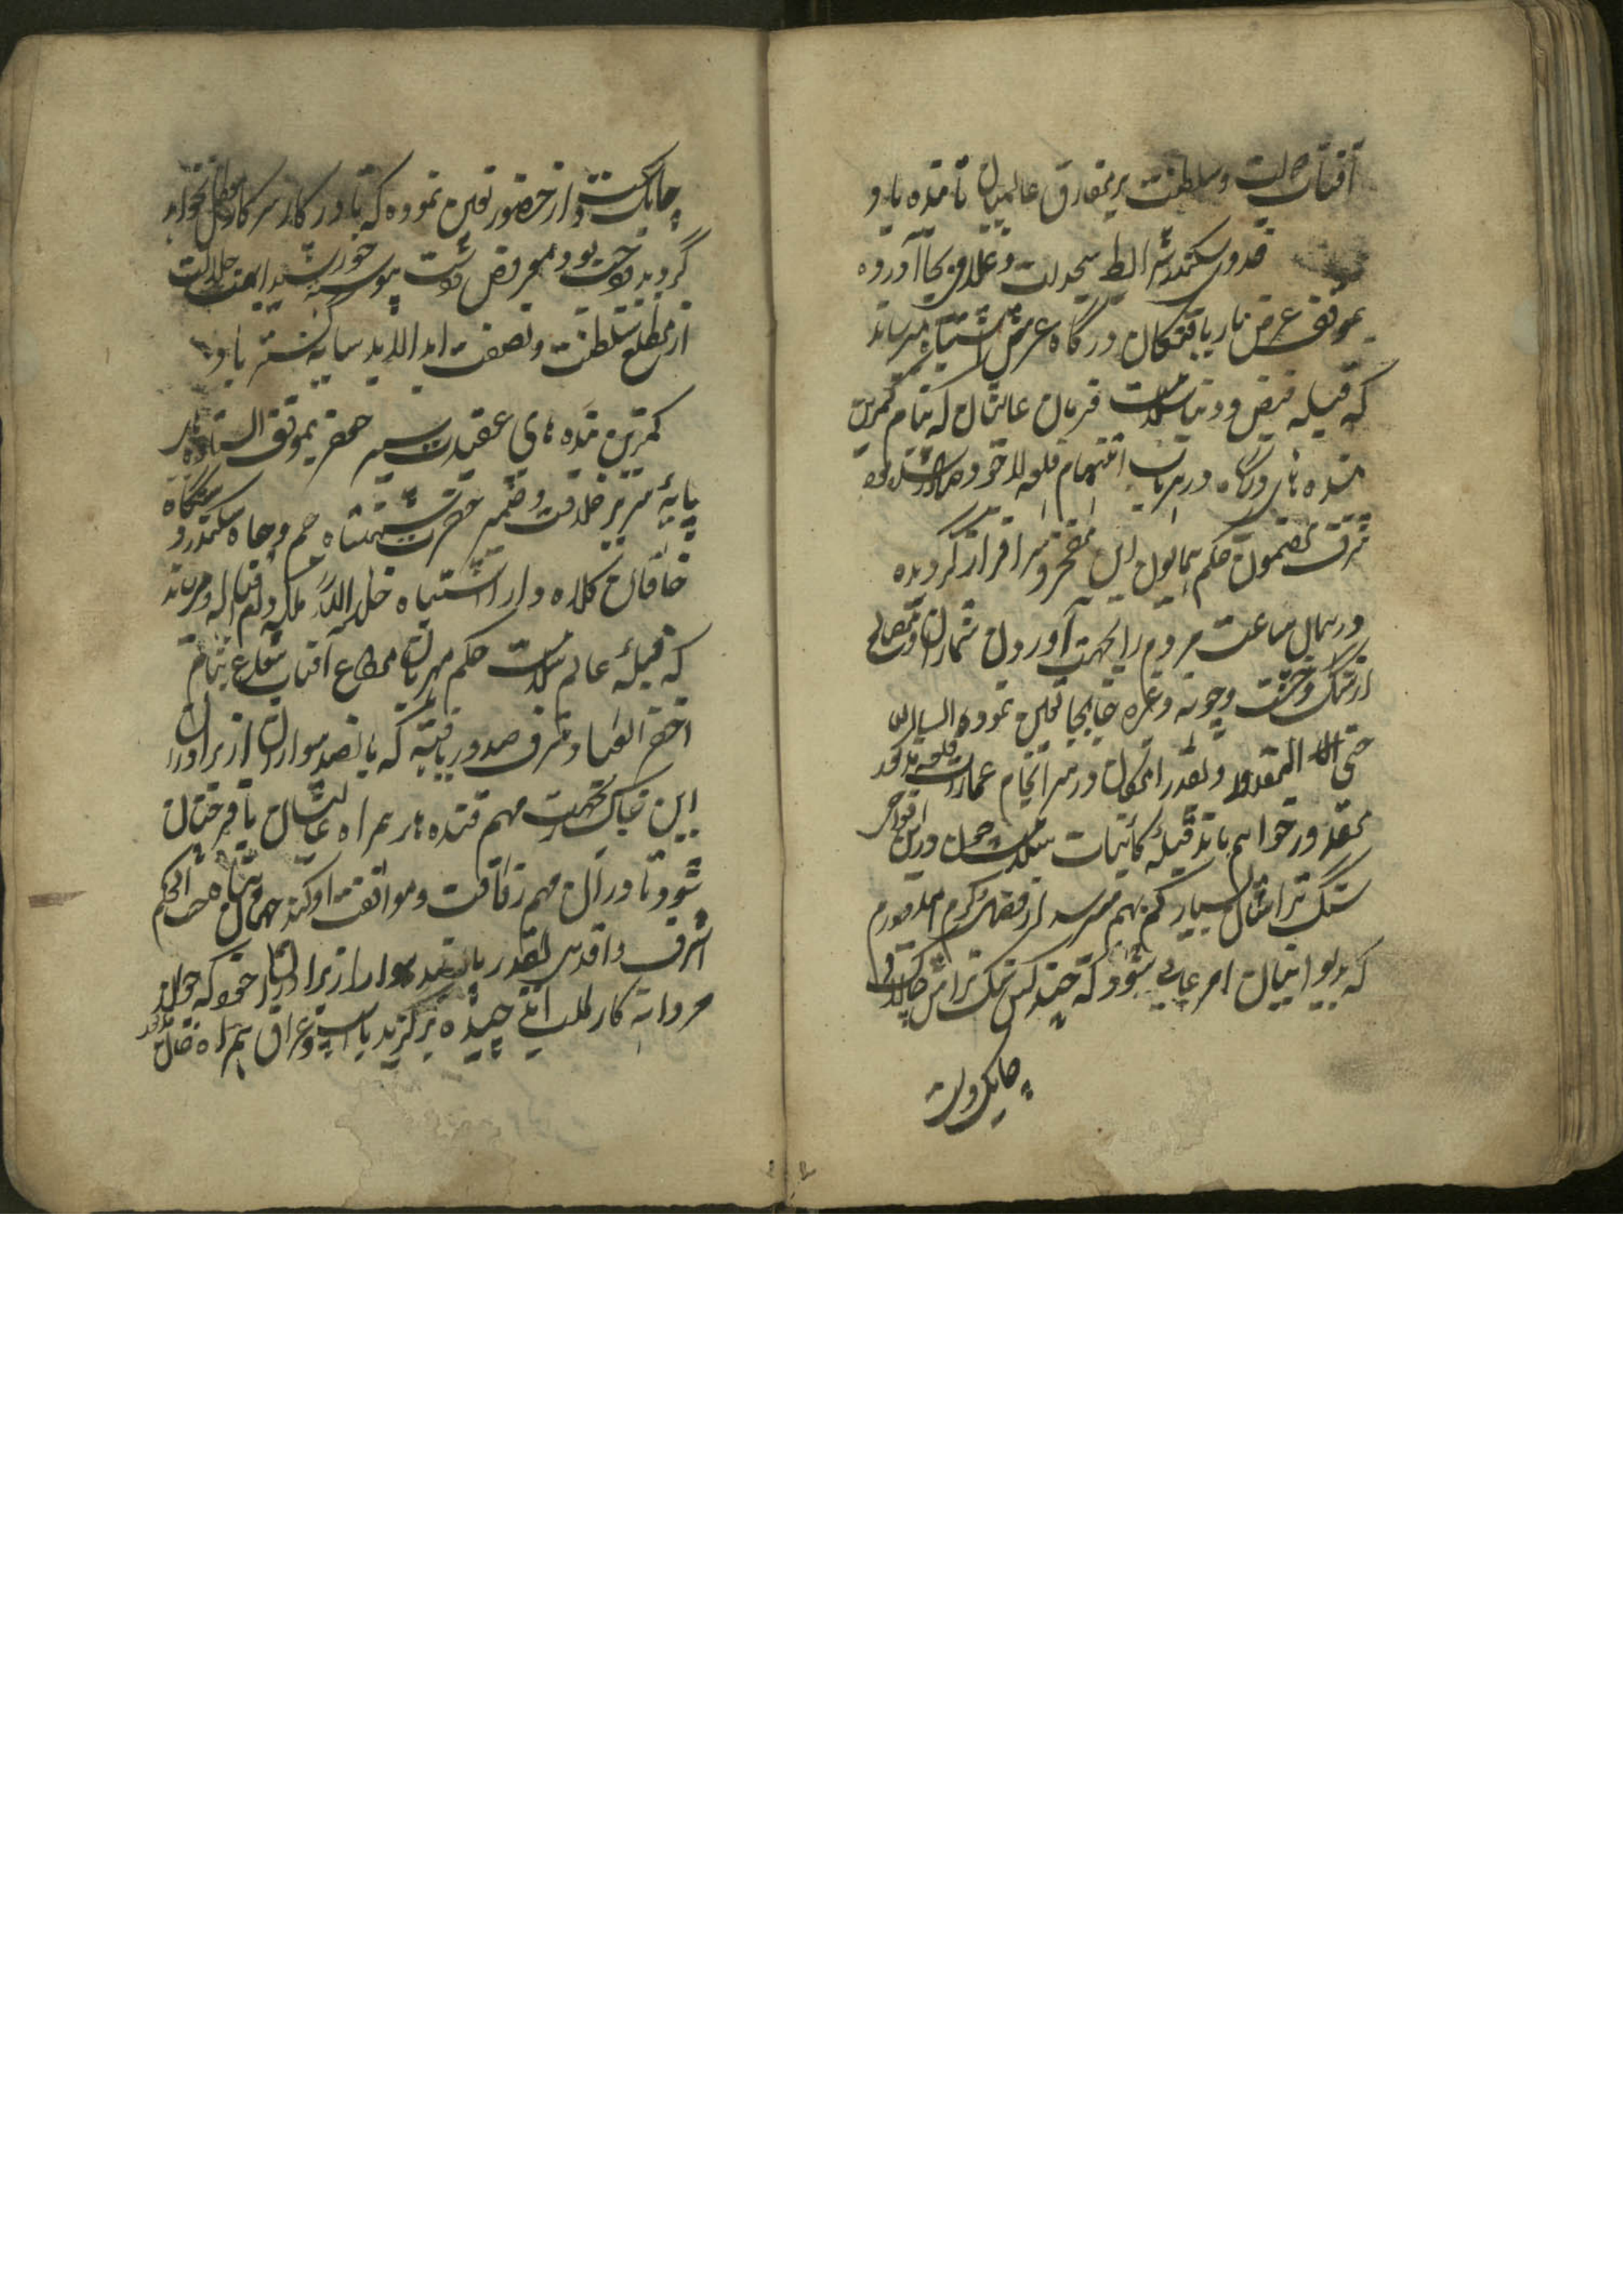 آفتاب دولت و سلطنت بر مفارق عالمیان تابنده باد
فدوی کمترین شرائط سجدات و غلامی بجا آورده
بموقف عرض باریافتگان درگاه عرش اشتباه میرساند
که قبله فیض و دنیا سلامت فرمان عالیشان که بنام کمترین
بنده های درگاه در باب اهتمام قلعه لاخور و صادر شده بود
شرف مضمون حکم همایون این مفتخر و سرافراز گردیده
در همان ساعت مردم را بجهت آوردن معماران و مصالح
از سنگ و خشت و چونه و غیره جابجا تعین نموده انشاالله
حتی المقدور و بقدر امکان در سرانجام عمارت قلعه مذکور
مقدور خواهم ماند قبله کائنات سلامت چون در این نواحی
سنگ تراشان بسیار کم بهم میرسد از فضل و کرم امیدوارم
که بدیوانیان امر عالی شود که چند کس سنگ تراش
چابک دست
چابکدست از حضور تعین نموده که تا در کار سرکار خواهد
گردید واجب بود بمعروض داشت پیوسته خورشید ابهت جلالت
از مطلع سلطنت و نصفت ابد الابد سایه گستر باد
کمترین بنده های عقیدت سیر بموقف ایستاده
پایه سریر خلافت و ضمیر حضرت شهنشاه جم جاه سکندر دستگاه
خاقان کلاه دارا اشتباه خلد الله ملکه میرساند
که قبله عالم سلامت حکم مهربان مطاع آفتاب شعاع بنام
احقر العباد شرف صدور یافته که پانصد سوار از برادران
این خاکی بجهت مهم قندهار همراه عالیشان بافرختان
شود تا در آن مهم رفاقت و موافقت او کند جهان پناه حسب الحکم
اشرف و اقدس بقدر پانصد سوار از برادران خود که جوان
مردانه کار طلب چیده برگزیده با اسپ عراق همراه خان مذکور